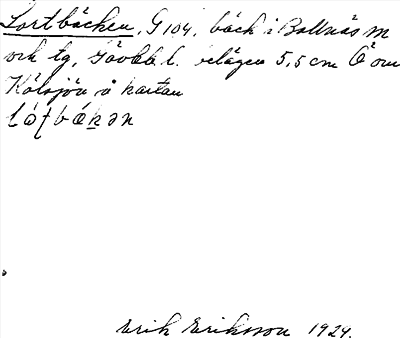 Lortbäcken, G 104, bäck i Bollnäs m
och tg, Gävleb. l. belägen 5,5 cm Ö om
Kölsjön å kartan
Erik Eriksson 1924.